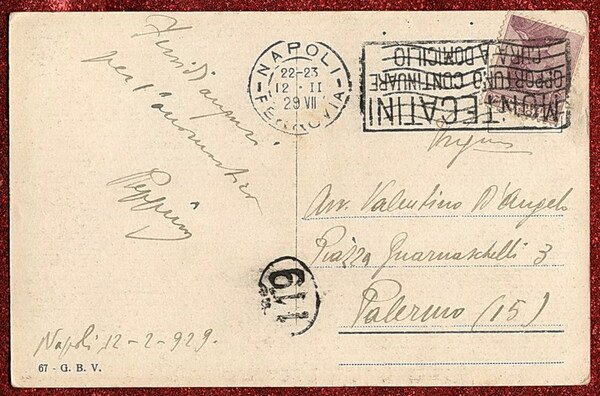 Fervidi auguri
per l'onomastico
Peppino
Napoli 12-2-929.
67 - G. B. V.
NAPOLI
22-23
12 · II
29 VII
FERROVIA
MONTECATINI
OPPORTUNO CONTINUARE
CURA A DOMICILIO
Avv. Valentino D'Angelo
Piazza Guarnaschelli 3
Palermo (15)
119